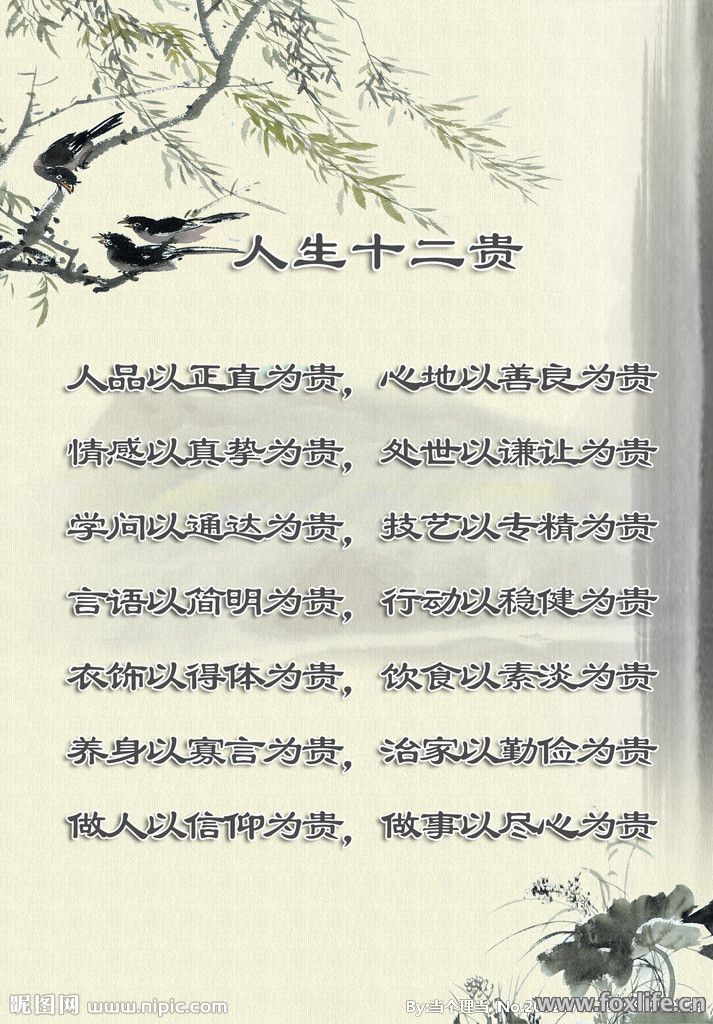 人生十二贵
人品以正直为贵，心地以善良为贵
情感以真挚为贵，处世以谦让为贵
学问以通达为贵，技艺以专精为贵
言语以简明为贵，行动以稳健为贵
衣饰以得体为贵，饮食以素淡为贵
养身以寡言为贵，治家以勤俭为贵
做人以信仰为贵，做事以尽心为贵
昵图网 www.nipic.com
By:当个理当 No.2
www.foxlife.cn